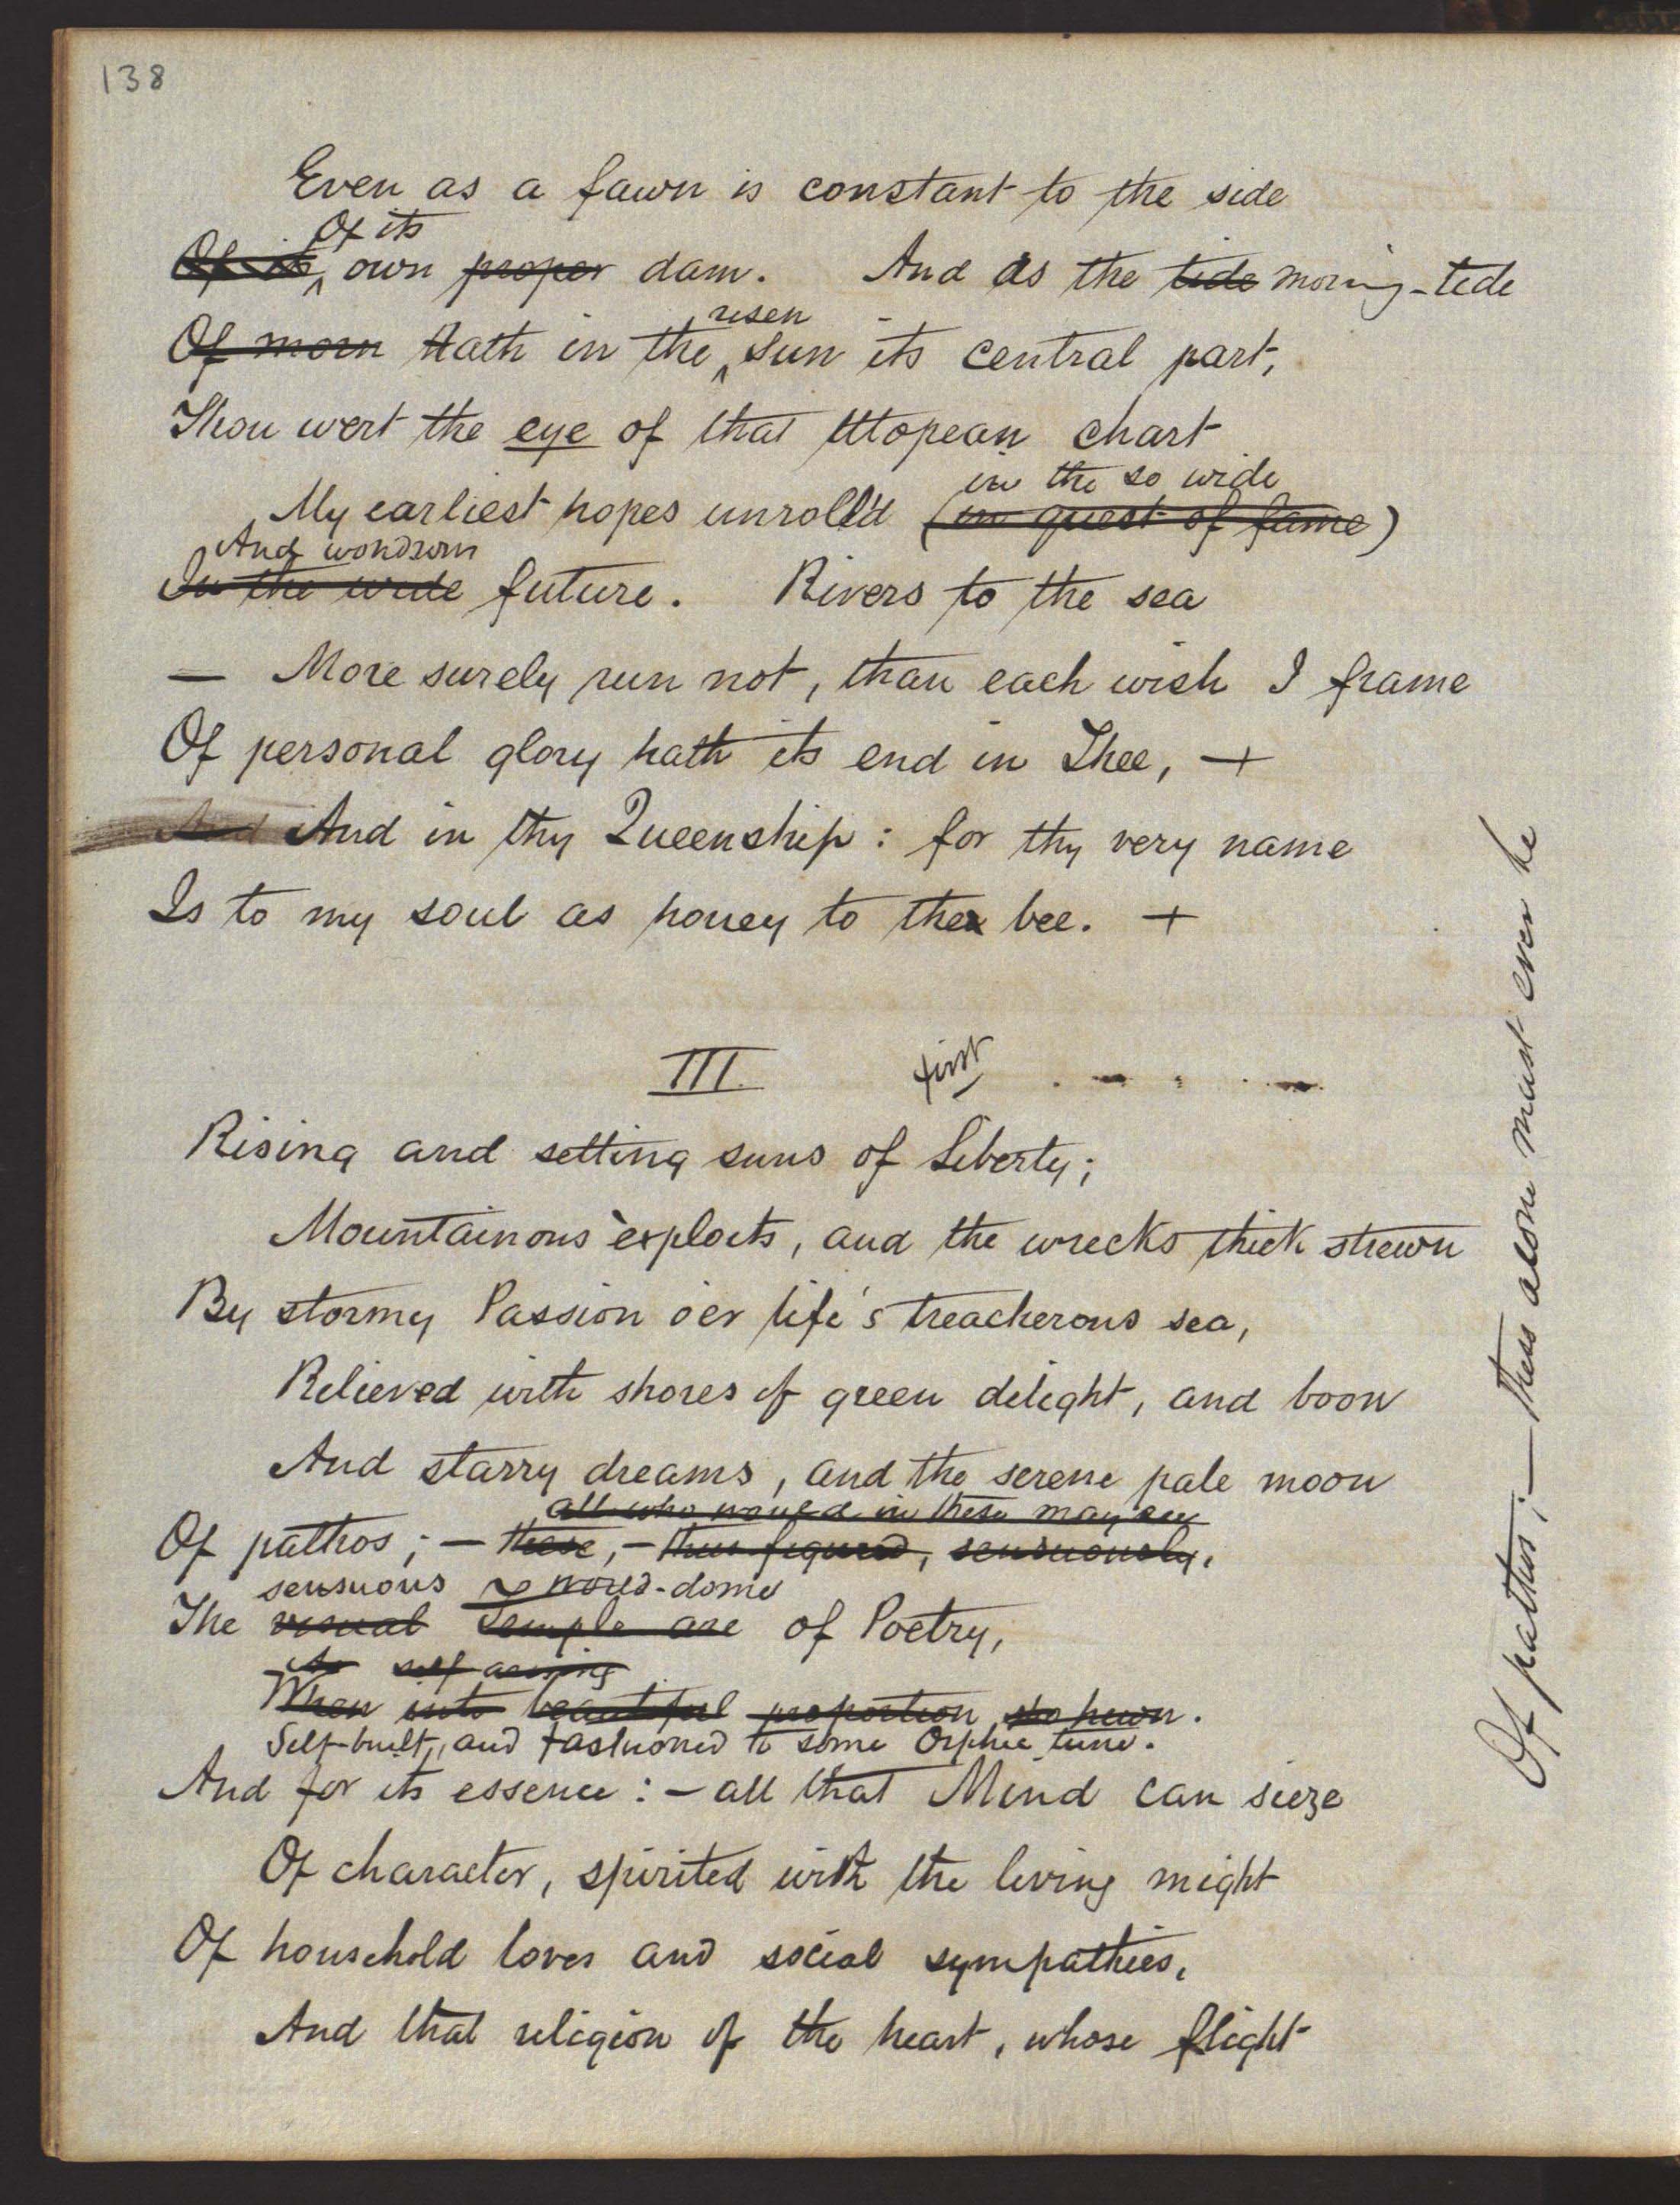 138
Even as a fawn is constant to the side
Of its
Of its own proper dam. And As the tide morning-tide
risen
Of morn Hath in the sun its central part,
Thou wert the eye of that Utopean chart
in the so wide
My earliest hopes unroll'd (in quest of fame)
And wondrous
In the wide future. Rivers to the sea
— More surely run not, than each wish I frame
Of personal glory hath its end in Thee, +
And And in thy Queenship: for thy very name
Is to my soul as honey to the bee. +
III. first
Rising and setting suns of Liberty;
Mountainous exploits, and the wrecks thick strewn
By stormy Passion o'er life's treacherous sea,
Relieved with shores of green delight, and boon
And starry dreams, and the serene pale moon
all who would in these may see
Of pathos; — these, — thus figured, sensuously,
sensuous world-dome
The visual Temple are of Poetry,
As self arising
When into beautiful proportion so hewn.
Self-built, and fashioned to some Orphic tune.
And for its essence: — all that Mind can sieze
Of character, spirited with the living might
Of household loves and social sympathies,
And that religion of the heart, whose flight
Of pathos; — these alone must even be